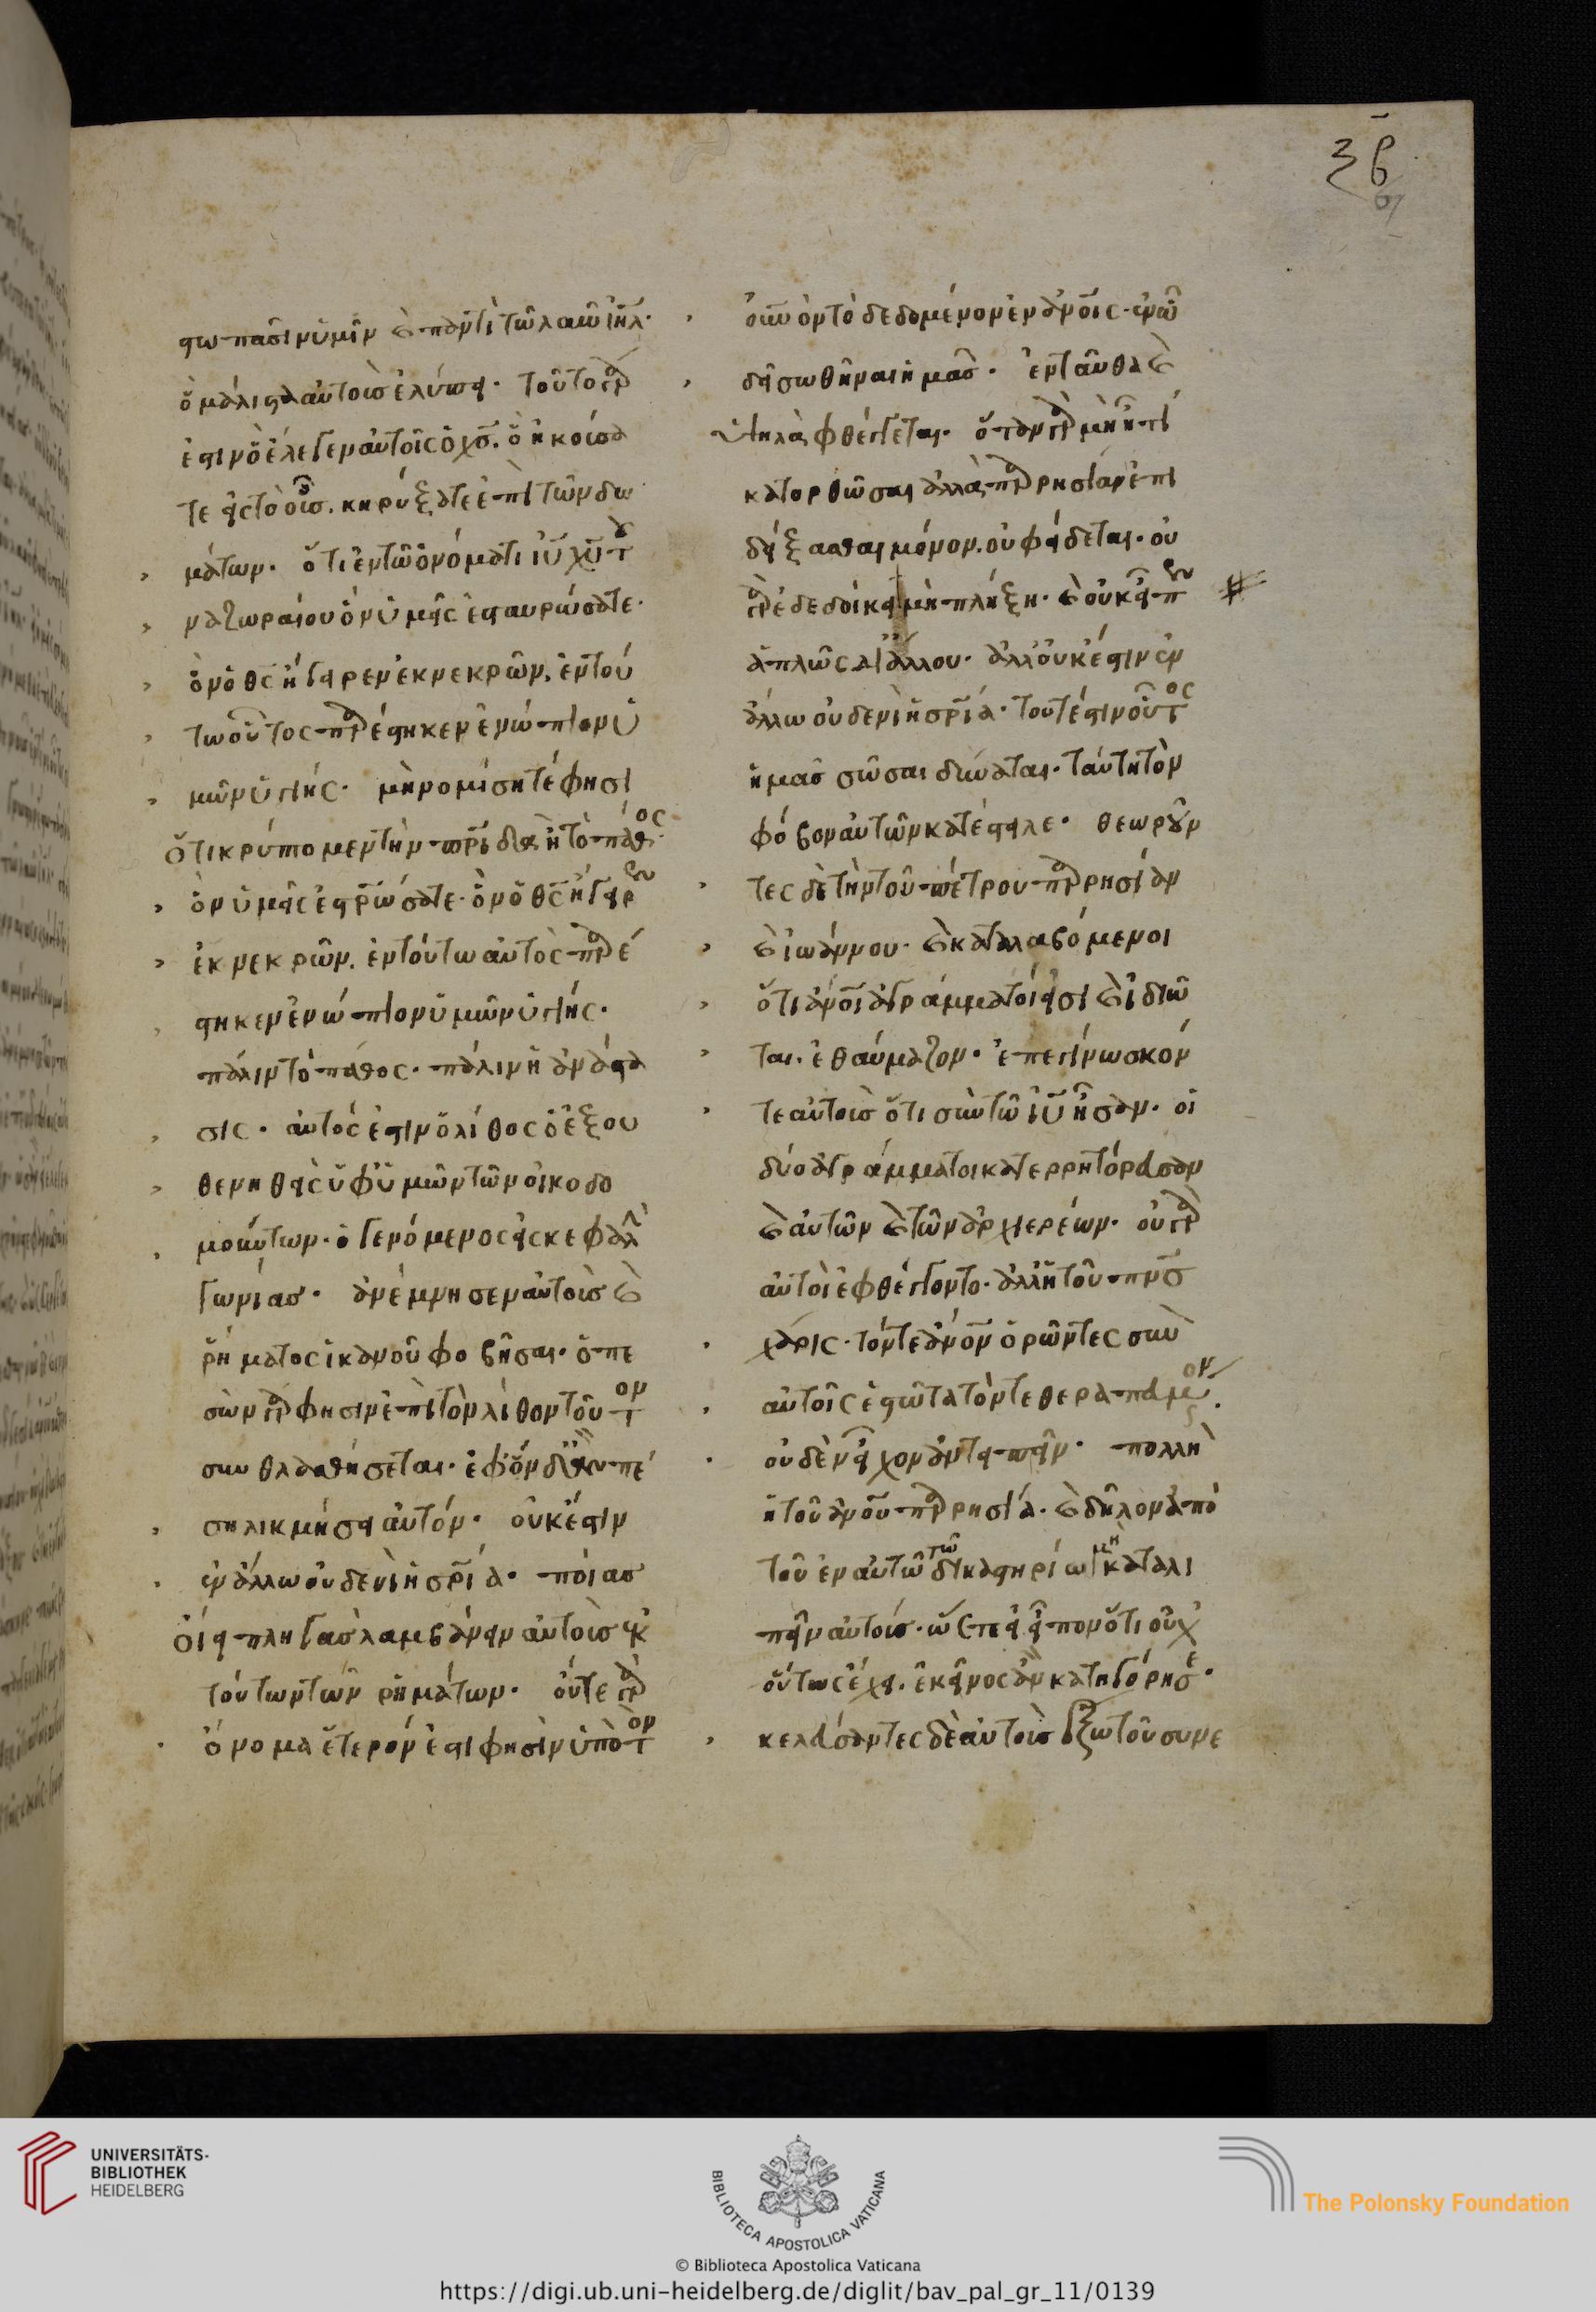 ξβ
67
στω πᾶσιν ὑμῖν καὶ παντὶ τῶ λαῶ ἰηλ·
ὃ μάλιστα αὐτοὺς ἐλύπει· τοῦτο γὰρ
ἐστιν ὃ ἔλεγεν αὐτοῖς ὁ χς. ὃ ἠκούσα
τε εἰς τὸ οὖς. κηρύξατε ἐπὶ τῶν δω
μάτων. ὅτι ἐν τῶ ὀνόματι ιυ χυ τοῦ
ναζωραίου ὃν ὑμεῖς ἐσταυρώσατε·
ὃν ὁ θς ἤγειρεν ἐκ νεκρῶν, ἐν τού
τω οὗτος παρέστηκεν ἐνώπιον ὑ
μῶν ὑγιής· μὴ νομίσητέ φησι
ὅτι κρύπτομεν τὴν πρίδα ἢ τὸ πάθος·
ὃν ὑμεῖς ἐστρώσατε· ὃν ὁ θς ἤγειρεν
ἐκ νεκρῶν. ἐν τούτω αὐτὸς παρέ
στηκεν ἐνώπιον ὑμῶν ὑγιής·
πάλιν τὸ πάθος· πάλιν ἡ ἀνάστα
σις· αὐτός ἐστιν ὁ λίθος ὁ ἐξου
θενηθεὶς ὑφ ὑμῶν τῶν οἰκοδο
μούντων· ὁ γενόμενος εἰς κεφαλὴν
γωνίας· ἀνέμνησεν αὐτοὺς καὶ
ῥήματος ἱκανοῦ φοβῆσαι· ὁ πε
σὼν γάρ φησιν ἐπὶ τὸν λίθον τοῦτον
συνθλασθήσεται· ἐφ ὃν δ ἂν πέ
ση λικμήσει αὐτόν· οὐκ ἔστιν
ἐν ἄλλω οὐδενὶ ἡ σρία· πόσας
οἴει πληγὰς λαμβάνειν αὐτοὺς ἐκ
τούτων τῶν ῥημάτων· οὔτε γὰρ
ὄνομα ἕτερόν ἐστι φησὶν ὑπὸ τὸν
οὐνὸν τὸ δεδομένον ἐν ἀνοις· ἐν ὧ
δεῖ σωθῆναι ἡμᾶς· ἐνταῦθα καὶ
ὑψηλὰ φθέγγεται· ὅταν γὰρ μὴ ἦ τί
κατορθῶσαι ἀλλὰ παρρησίαν ἐπι
δείξασθαι μόνον. οὐ φείδεται· οὐ
γὰρ ἐδεδοίκει μὴ πλήξη· καὶ οὐκ εἶπεν
ἁπλῶς δι ἄλλου· ἀλλ οὐκ ἔστιν ἐν
ἄλλω οὐδενὶ ἡ σρία· τουτέστιν οὗτος
ἡμᾶς σῶσαι δύναται· ταύτη τὸν
φόβον αὐτῶν κατέστειλε· θεωροῦν
τες δὲ τὴν τοῦ πέτρου παρρησίαν
καὶ ἰωάννου· καὶ καταλαβόμενοι
ὅτι ἀνοι ἀγράμματοί εἰσι καὶ ἰδιῶ
ται. ἐθαύμαζον· ἐπεγίνωσκόν
τε αὐτοὺς ὅτι σὺν τῶ ιυ ἦσαν· οἱ
δύο ἀγράμματοι κατερρητόρευσαν
καὶ αὐτῶν καὶ τῶν ἀρχιερέων· οὐ γὰρ
αὐτοὶ ἐφθέγγοντο· ἀλλ ἡ τοῦ πνς
χάρις· τόν τε ἀνον ὁρῶντες σὺν
αὐτοῖς ἑστῶτα τὸν τεθεραπευμένον.
οὐδὲν εἶχον ἀντειπεῖν· πολλὴ
ἡ τοῦ ἀνου παρρησία· καὶ δῆλον ἀπὸ
τοῦ ἐν αὐτῶ τῶ δικαστηρίω μὴ καταλι
πεῖν αὐτούς· ὥσπερ εἰ εἶπον ὅτι οὐχ
οὕτως ἔχει. ἐκεῖνος ἂν κατηγόρησε·
κελεύσαντες δὲ αὐτοὺς ἔξω τοῦ συνε
UNIVERSITÄTS-
BIBLIOTHEK
HEIDELBERG
BIBLIOTECA APOSTOLICA VATICANA
© Biblioteca Apostolica Vaticana
The Polonsky Foundation
https://digi.ub.uni-heidelberg.de/diglit/bav_pal_gr_11/0139